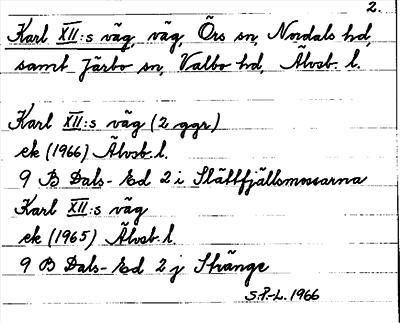 2.
Karl XII:s väg, väg, Örs sn, Nordals hd,
samt Järbo sn, Valbo hd, Älvsb. l.
Karl XII:s väg (2 ggr)
ek (1966) Älvsb. l.
9 B Dals-Ed 2 i Slättfjällsmossarna
Karl XII:s väg
ek (1965) Älvsb. l.
9 B Dals-Ed 2 j Stränge
S.P.-L. 1966